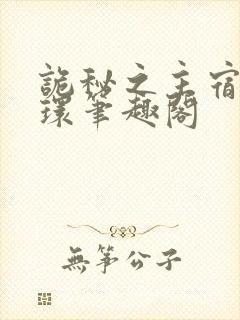 詭秘之主宿
環筆趣閣
無箏公子